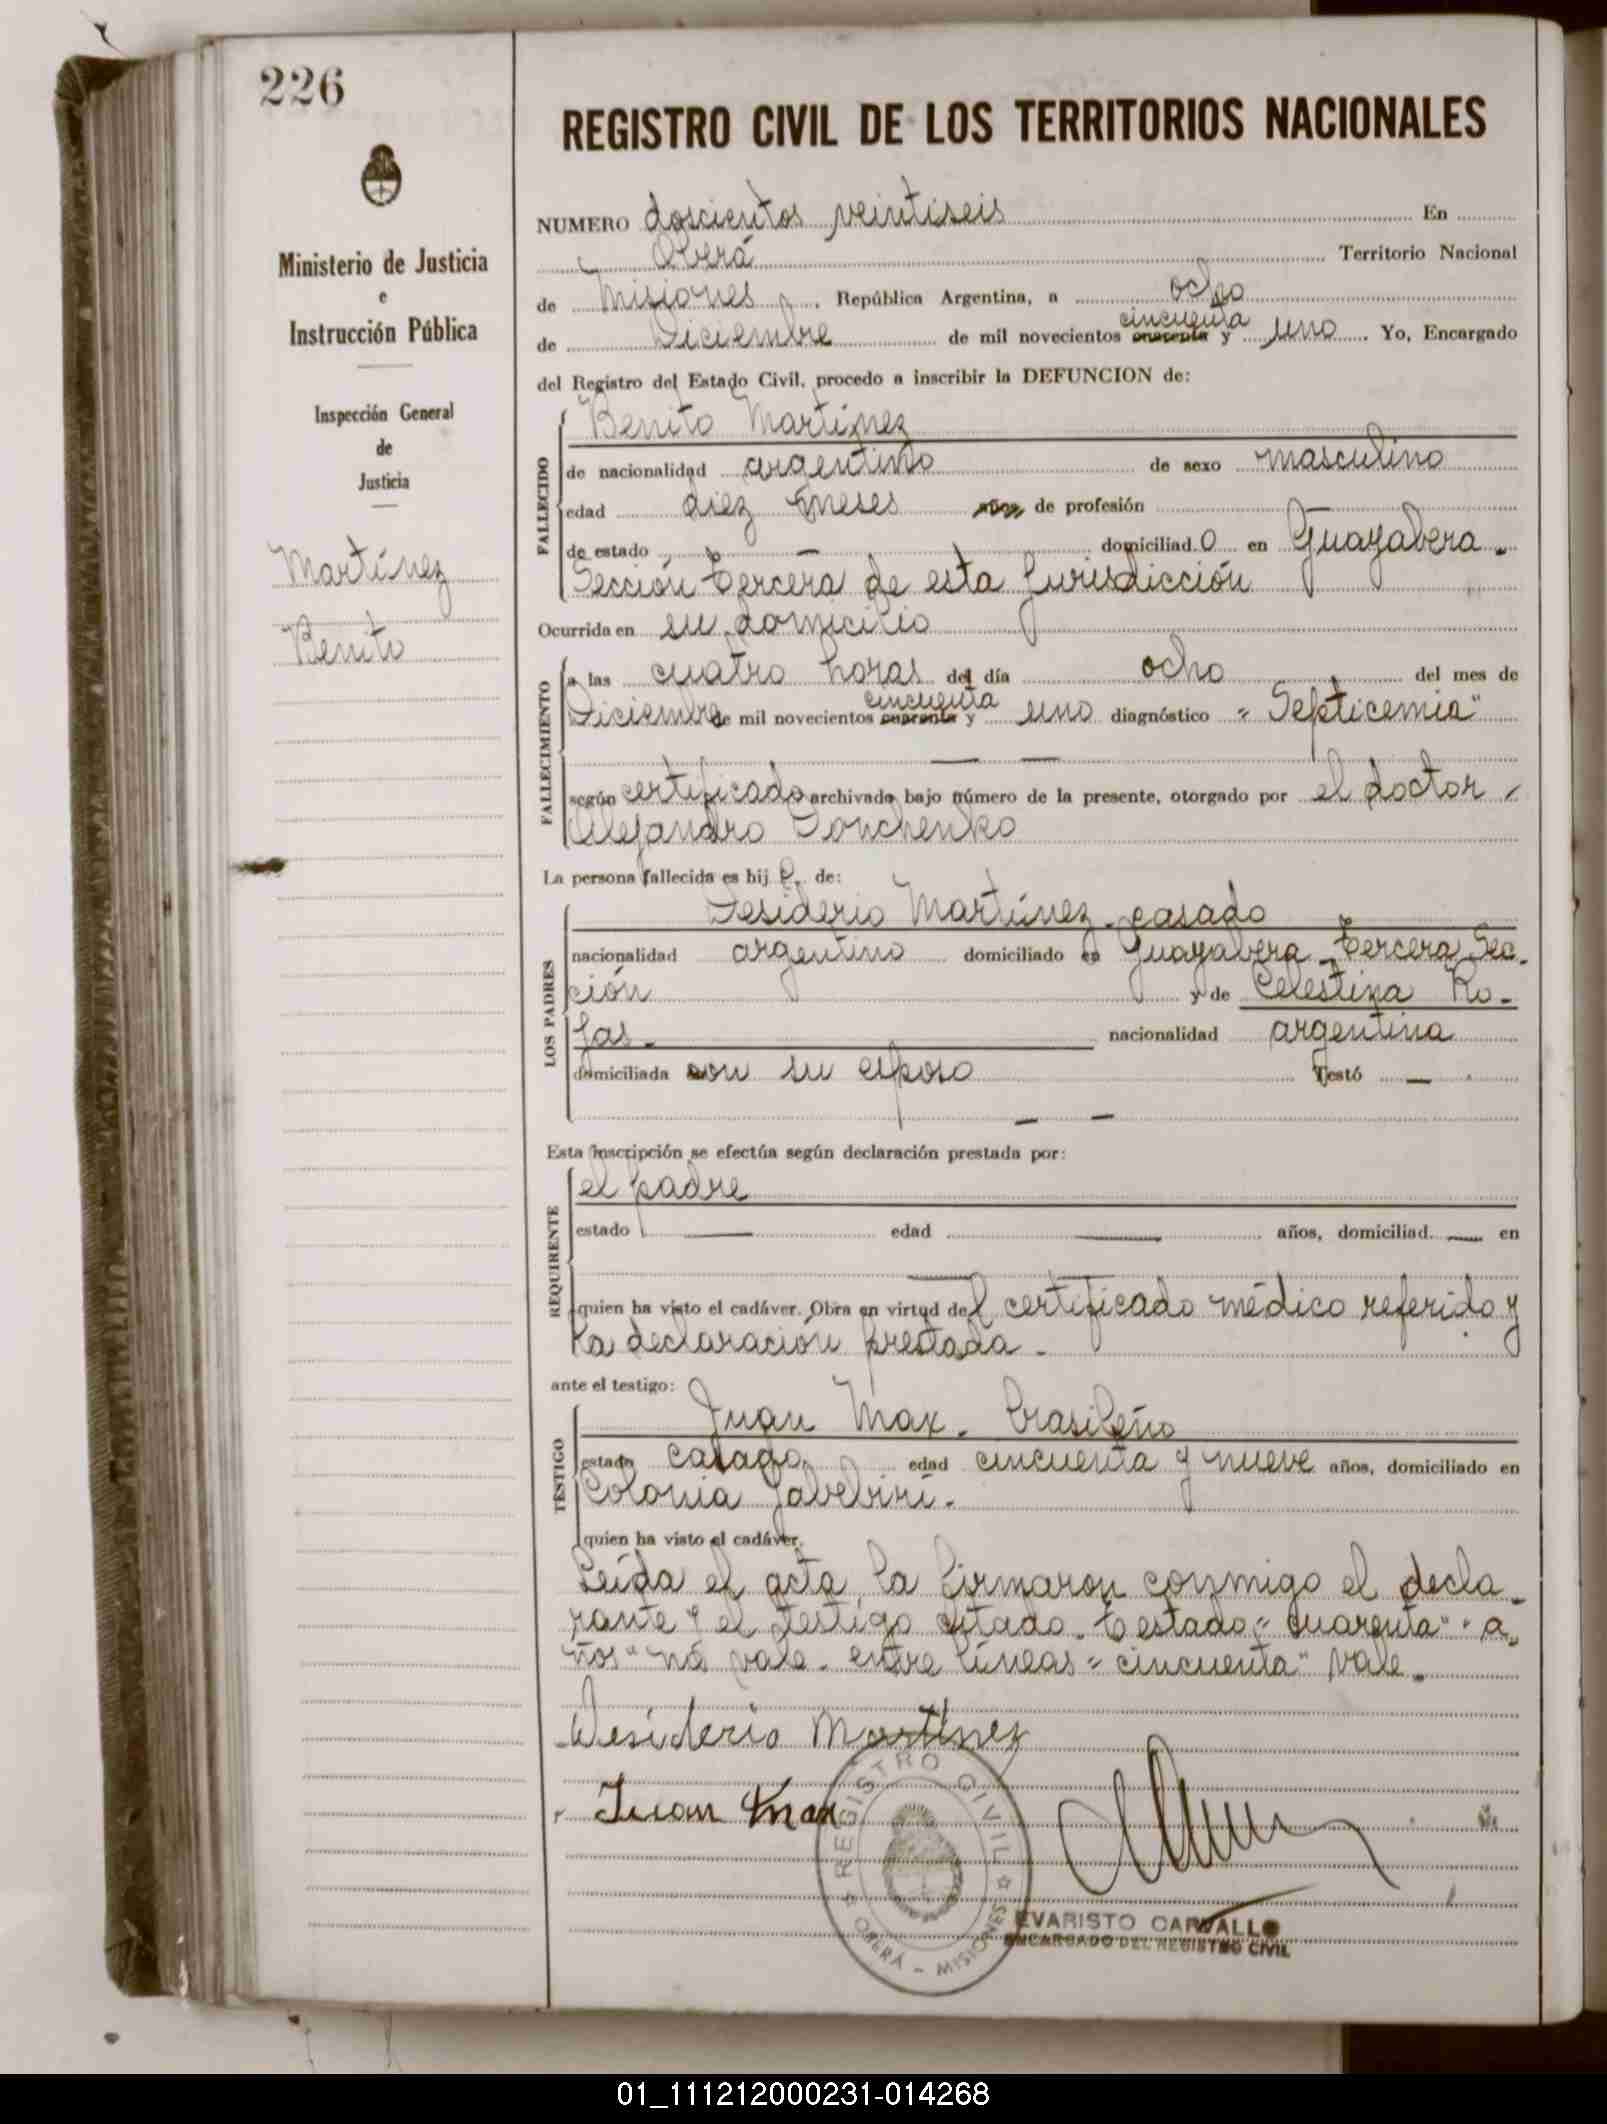 226
REGISTRO CIVIL DE LOS TERRITORIOS NACIONALES
Ministerio de Justicia
e
Instrucción Pública
Inspección General
de
Justicia
Martínez
Benito
NUMERO doscientos veintiseis En
Oberá Territorio Nacional
de Misiones República Argentina, a ocho
cincuenta
de Diciembre de mil novecientos cuarenta y uno. Yo, Encargado
del Registro del Estado Civil, procedo a inscribir la DEFUNCION de:
FALLECIDO
Benito Martínez
de nacionalidad argentino de sexo masculino
edad diez meses años de profesión
de estado — domiciliad o en Guayabera -
Sección tercera de esta Jurisdicción
Ocurrida en su domicilio
FALLECIMIENTO
a las cuatro horas del día ocho del mes de
cincuenta
Diciembre de mil novecientos cuarenta y uno diagnóstico "Septicemia"
— —
según certificado archivado bajo número de la presente, otorgado por el doctor
Alejandro Donchenko
La persona fallecida es hij o. de:
LOS PADRES
Desiderio Martínez - casado
nacionalidad argentino domiciliado en Guayabera - tercera Sec-
ción y de Celestina Ro-
jas - nacionalidad argentina
domiciliada con su esposo Testó —
— —
Esta inscripción se efectúa según declaración prestada por:
REQUIRENTE
el padre
estado — edad — años, domiciliad. — en
— —
quien ha visto el cadáver. Obra en virtud del certificado médico referido y
la declaración prestada -
ante el testigo:
TESTIGO
Juan Max - brasileño
estado casado, edad cincuenta y nueve años, domiciliado en
Colonia Yabebirí -
quien ha visto el cadáver.
Leída el acta la firmaron conmigo el decla-
rante y el testigo citado - testado = "cuarenta" - "a-
ños" no vale - entre líneas = "cincuenta" vale -
Desiderio Martínez
Juan Max
REGISTRO CIVIL
OBERÁ - MISIONES
EVARISTO CARVALLO
ENCARGADO DEL REGISTRO CIVIL
01_111212000231-014268